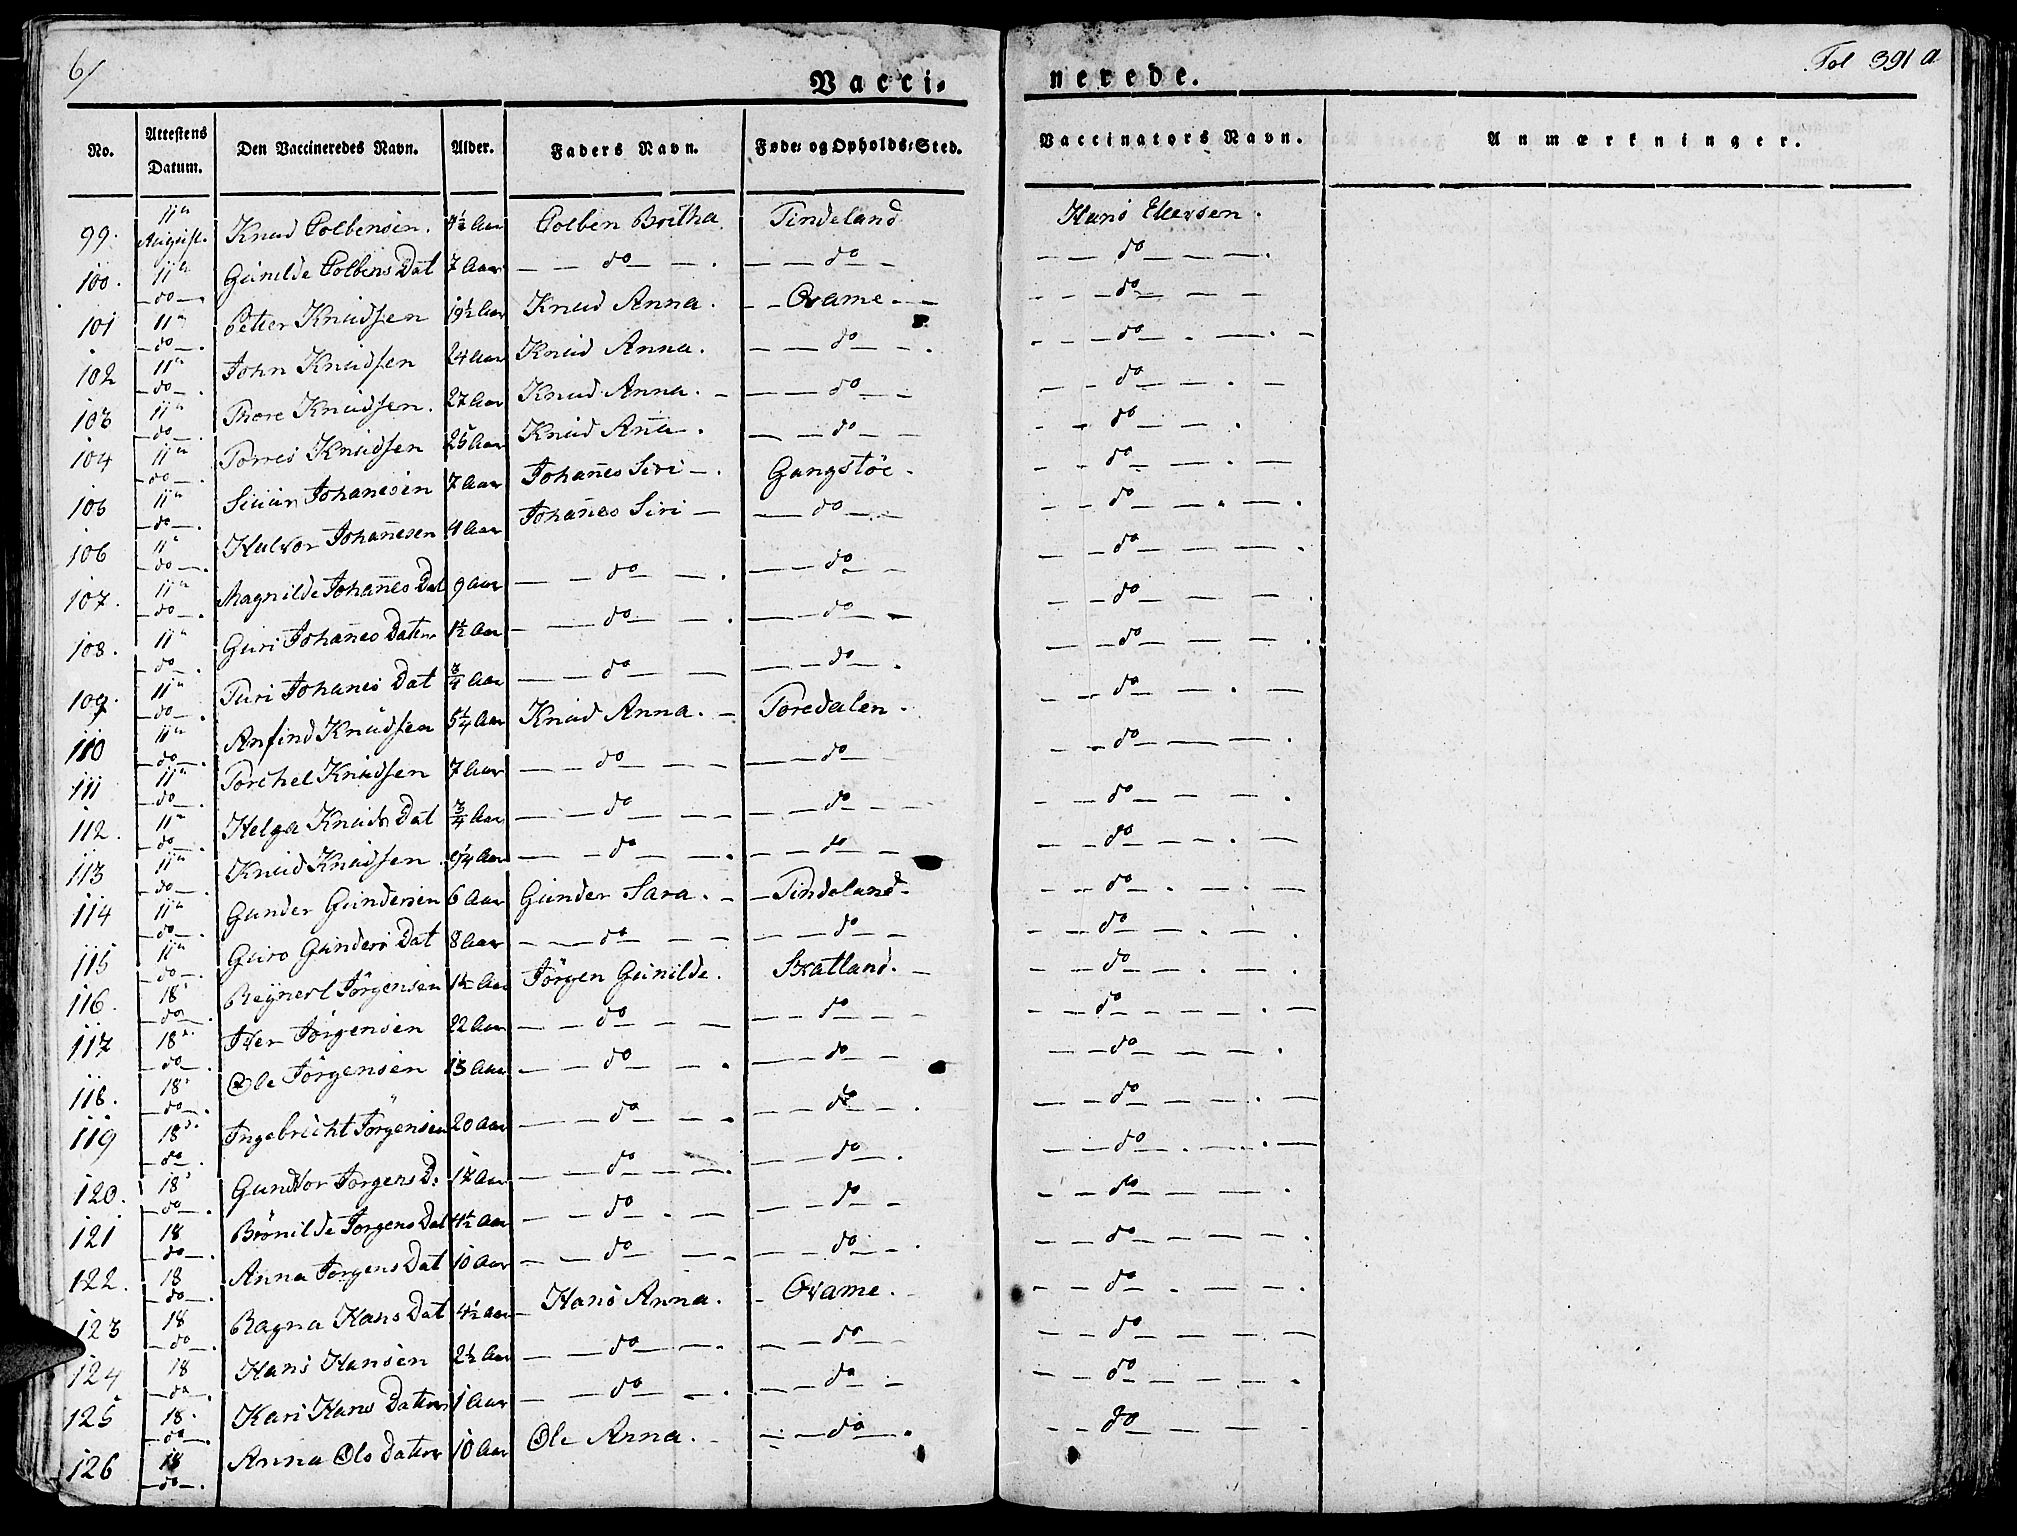 6/
Fol 391 a
Vacci- nerede.
No. Attestens Datum. Den Vaccineredes Navn. Alder. Faders Navn. Føde- og Opholds-Sted. Vaccinators Navn. Anmærkninger.
99. 11te August. Knud Colbensen. 4½ Aar Colben Britha Tindeland Hans Ellersen.
100. 11te do Gunilde Colbens Dat 7 Aar do do do
101 11te do Peter Knudsen 19½ Aar Knud Anna. Qvame do
102 11te do John Knudsen 24 Aar Knud Anna. do do
103 11te do Thore Knudsen. 27 Aar Knud Anna. do do
104 11te do Torres Knudsen 25 Aar Knud Anna. do do
105 11te do Johanesen 7 Aar Johanes Siri Gangstöe do
106 11te do Halvor Johannesen 4 Aar Johanes Siri do do
107. 11te do Magnilde Johanes Dat 9 Aar do do do
108. 11te do Guri Johanes Datter 1½ Aar do do do
109. 11te do Turi Johanes Dat ¾ Aar do do do
110 11te do Anfind Knudsen 5¼ Aar Knud Anna. Toredalen. do
111 11te do Torchel Knudsen 7 Aar do do do
112. 11te do Helga Knuds Dat ¾ Aar do do do
113 11te do Knud Knudsen Aar do do do
114 11te do Gunder Gundersen 6 Aar Gunder Sara. Tindeland. do
115 11te do Guro Gunders Dat 8 Aar do do do
116. 18 do Reÿnert Jörgensen Aar Jörgen Gunilde. Skatland. do
117 18 do Iver Jörgensen 22 Aar do do do
118. 18 do Ole Jörgensen 13 Aar do do do
119 18 do Ingebricht Jörgensen 20 Aar do do do
120. 18 do Gundvor Jörgens D: 17 Aar do do do
121 18 do Brönilde Jörgens Dat 4½ Aar do do do
122. 18 do Anna Jörgens Dat 10 Aar do do do
123 18 do Ragna Hans Dat 4½ Aar Hans Anna. Qvame. do
124 18 do Hans Hansen 2½ Aar do do do
125 18 do Kari Hans Datter 1 Aar do do do
126 18 do Anna Ols Datter 10 Aar Ole Anna. do do